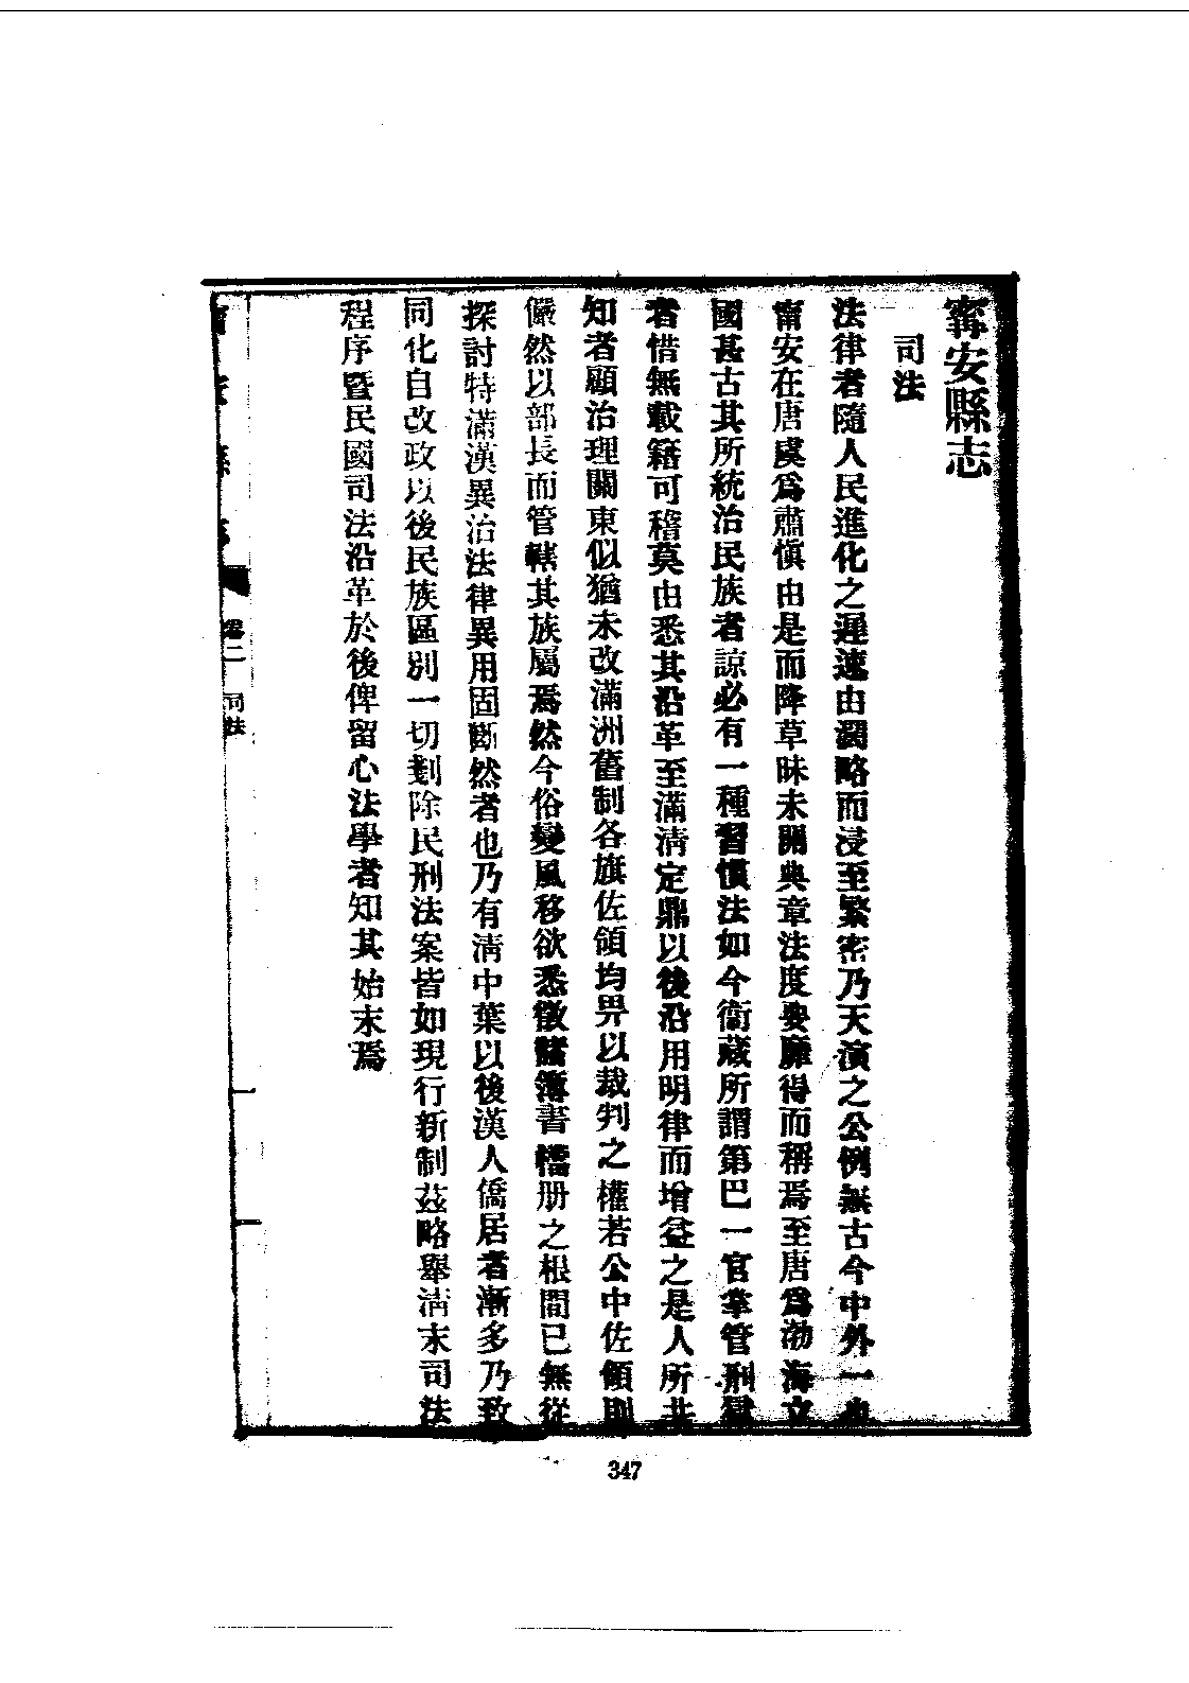 寗安縣志
司法
法律者隨人民進化之遲速由濶略而浸至繁密乃天演之公例無古今中外一也
甯安在唐虞爲肅慎由是而降草昧未開典章法度要靡得而稱焉至唐爲渤海立
國甚古其所統治民族者諒必有一種習慣法如今衞藏所謂第巴一官掌管刑獄
者惜無載籍可稽莫由悉其沿革至滿淸定鼎以後沿用明律而增益之是人所共
知者顧治理關東似猶未改滿洲舊制各旗佐領均畀以裁判之權若公中佐領則
儼然以部長而管轄其族屬焉然今俗變風移欲悉徵諸簿書檔册之根間已無從
探討特滿漢異治法律異用固斷然者也乃有淸中葉以後漢人僑居者漸多乃致
同化自改政以後民族區別一切剗除民刑法案皆如現行新制茲略舉淸末司法
程序暨民國司法沿革於後俾留心法學者知其始末焉
卷二 司法
347